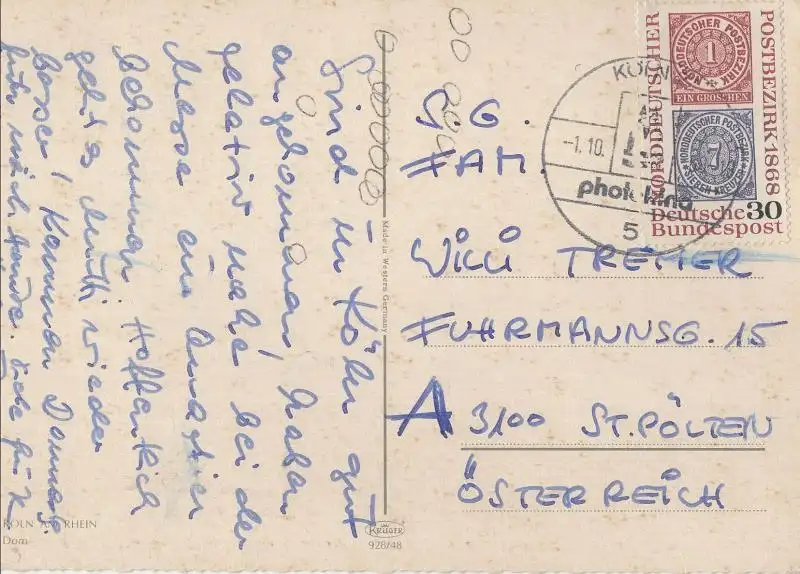 Sind in Köln gut
angekommen, haben
relativ nahe bei der
Messe ein Quartier
bekommen. Hoffentlich
geht es Mutti wieder
besser! Kommen Donners.
für mich
KÖLN AM RHEIN
Dom
Made in Western Germany
KRÜGER
928/48
S. G.
FAM.
WILLI TRETTER
FUHRMANNSG. 15
A 3100 ST. PÖLTEN
ÖSTERREICH
KÖLN
-1.10.
photokina
5
NORDDEUTSCHER
POSTBEZIRK 1868
NORDDEUTSCHER POSTBEZIRK
1
EIN GROSCHEN
NORDDEUTSCHER POSTBEZIRK
7
SIEBEN KREUZER
Deutsche 30
Bundespost